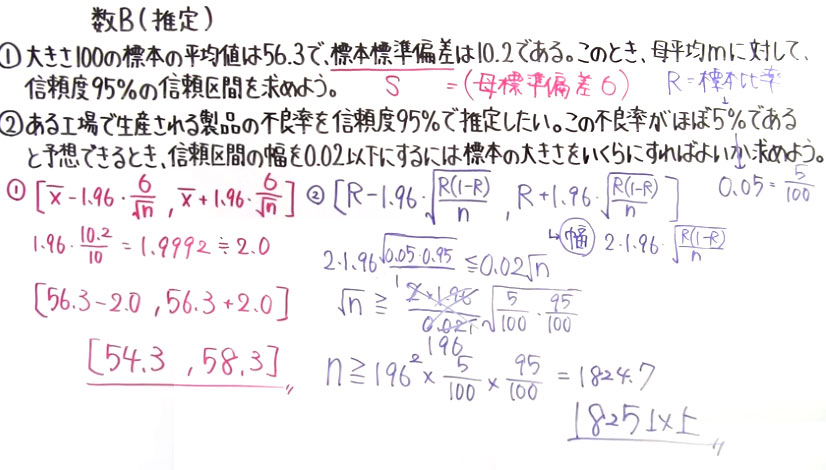 数B(推定)
①大きさ100の標本の平均値は56.3で、標本標準偏差は10.2である。このとき、母平均mに対して、
信頼度95%の信頼区間を求めよう。 S =(母標準偏差6) R=標本比率
②ある工場で生産される製品の不良率を信頼度95%で推定したい。この不良率がほぼ5%である
と予想できるとき、信頼区間の幅を0.02以下にするには標本の大きさをいくらにすればよいか求めよう。
① [x̄-1.96・6/√n , x̄+1.96・6/√n] ② [R-1.96・√(R(1-R)/n) , R+1.96・√(R(1-R)/n)] 0.05=5/100
1.96・10.2/10=1.9992≒2.0
↳幅 2・1.96・√(R(1-R)/n)
2・1.96√(0.05・0.95)≦0.02√n
[56.3-2.0 , 56.3+2.0]
√n≧ 2×1.96/0.02 √(5/100・95/100)
196
[54.3 , 58.3]
n≧196²×5/100×95/100=1824.7
1825以上